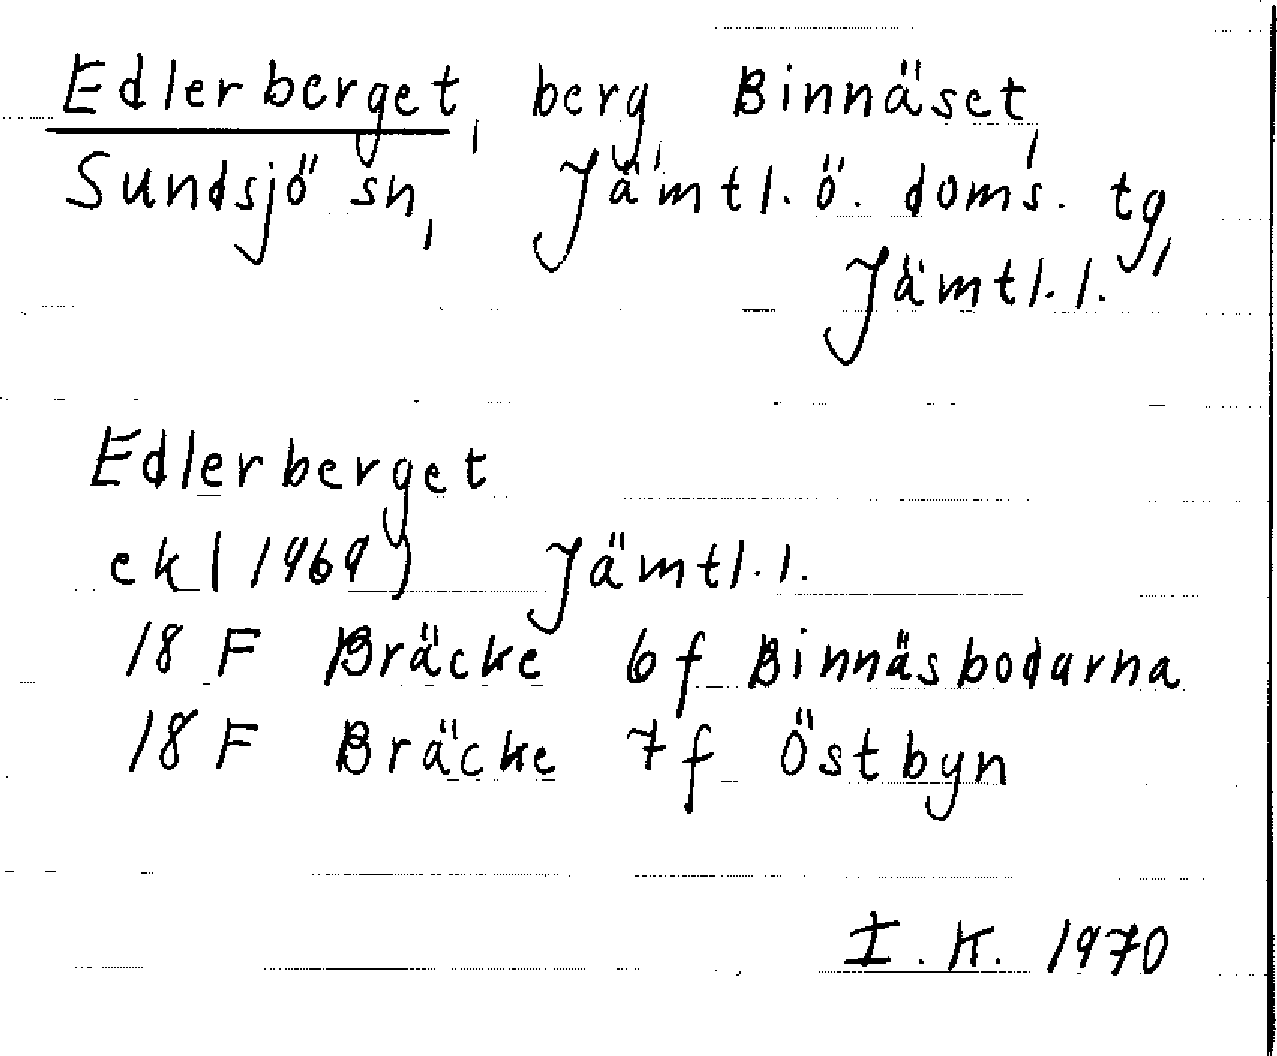 Edlerberget, berg, Binnäset,
Sundsjö sn, Jämtl. ö. doms. tg,
Jämtl. l.
Edlerberget
ek (1969) Jämtl. l.
18 F Bräcke 6 f Binnäsbodarna
18 F Bräcke 7 f Östbyn
I. K. 1970